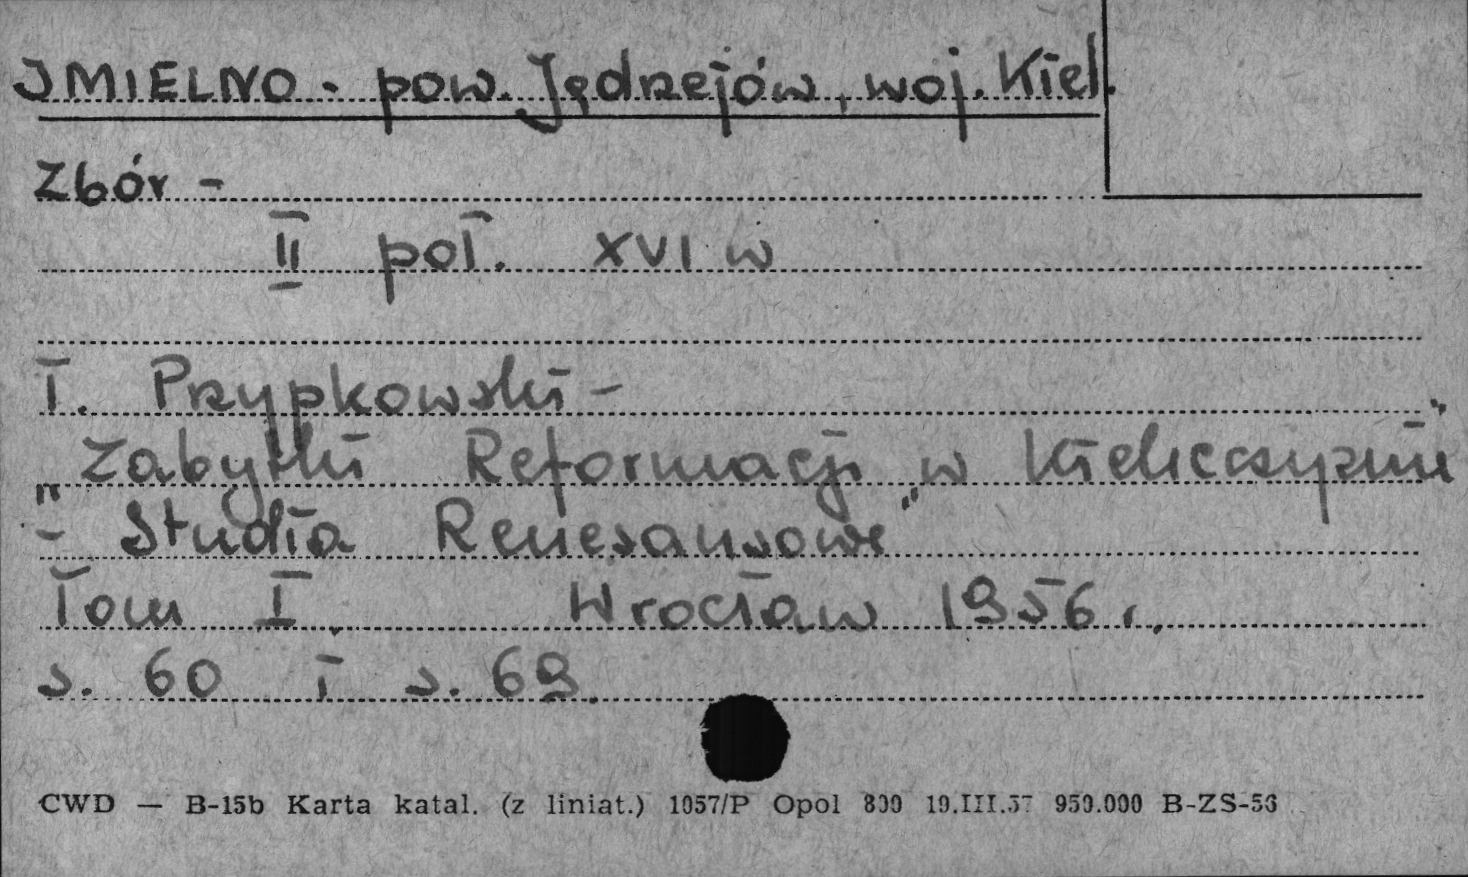 JMIELNO - pow. Jędrzejów, woj. Kiel.
Zbór -
II poł. XVI w
T. Przypkowski -
Zabytki Reformacji w Kielecczyźnie"
"- Studia Renesansowe"
Tom I. Wrocław 1956 r.,
s. 60 i s. 69.
CWD — B-15b Karta katal. (z liniat.) 1057/P Opol 800 19.III.57 950.000 B-ZS-56